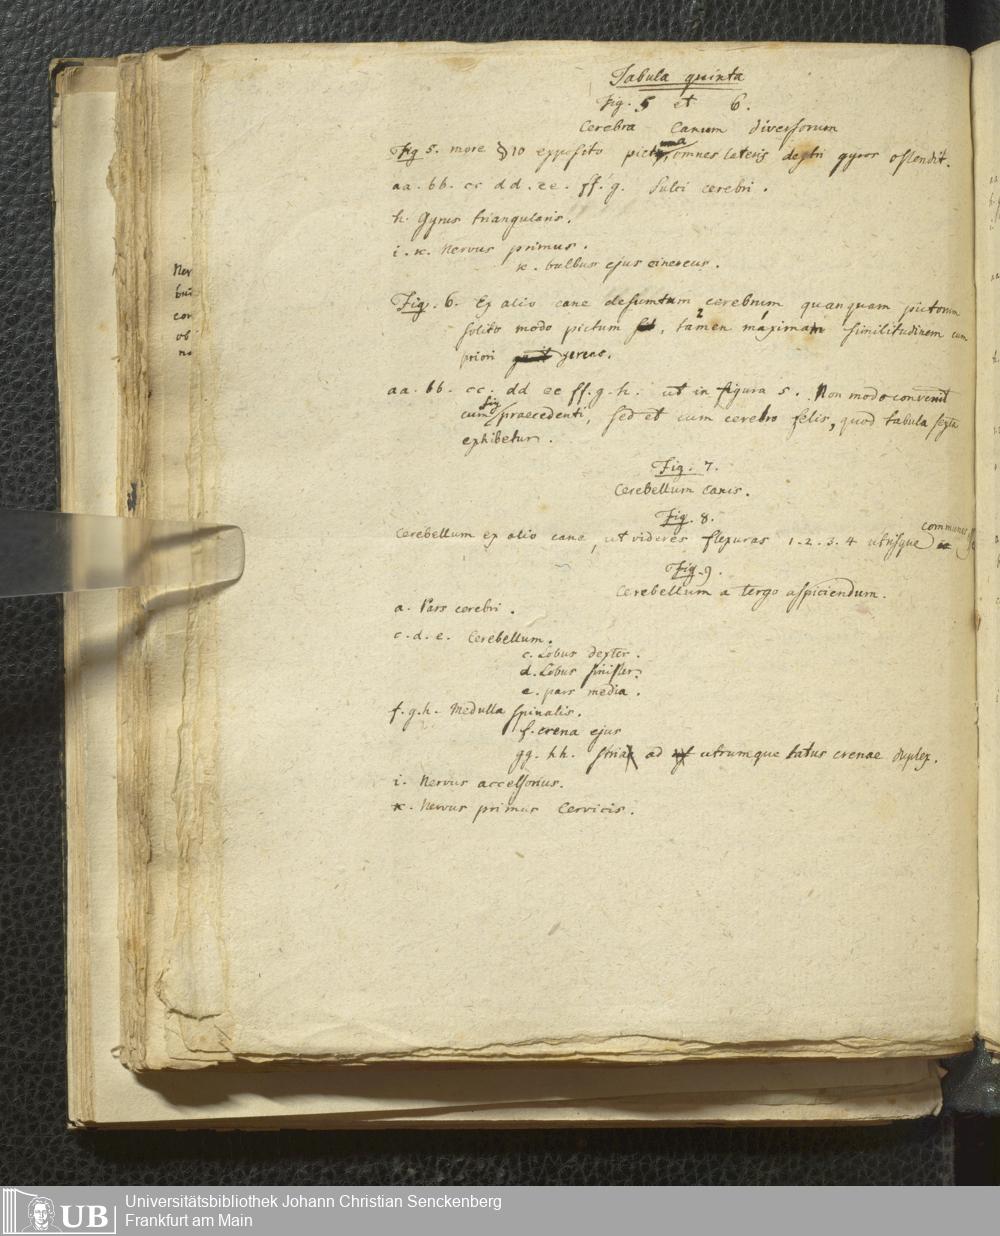 Tabula quinta
Fig. 5 et 6.
Cerebra Canum diversorum
Fig 5. more § 10 exposito picta omnes lateris dextri gyros ostendit.
aa. bb. cc dd. ee. ff. g. Sulci cerebri.
h. Gyrus triangularis.
i. k. Nervus primus.
k. bulbus ejus cinereus.
Fig. 6. Ex alio cane desumtum cerebrum quanquam pictorum
solito modo pictum, tamen maximam similitudinem cum
priori gerens.
aa. bb. cc. dd ee ff. g. h. ut in figura 5. Non modo convenit
cum fig praecedenti, sed et cum cerebro felis, quod tabula sexta
exhibetur.
Fig. 7.
Cerebellum Canis.
Fig. 8.
Cerebellum ex alio cane, ut videres flexuras 1. 2. 3. 4 utrisque communes
Fig. 9.
Cerebellum a tergo aspiciendum.
a. Pars cerebri.
c. d. e. Cerebellum.
c. Lobus dexter.
d. Lobus sinister.
e. pars media.
f. g. h. Medulla spinalis.
f. crena ejus
gg. hh. stria ad utrumque latus crenae duplex.
i. Nervus accessorius.
k. Nervus primus Cervicis.
Ner
bui
cor
ob
UB
Universitätsbibliothek Johann Christian Senckenberg
Frankfurt am Main